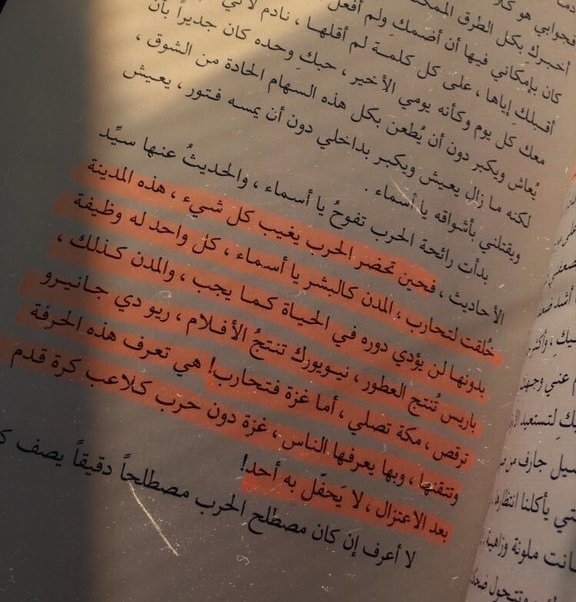 فجوابي هو
أخبرك بكل الطرق الممكنة
كان بإمكاني فيها أن أضمك ولم أفعل
أقبلك إياها ، على كل كلمة لم أقلها ، نادم لأني
معك كل يوم وكأنه يومي الأخير ، حبك وحده كان جديراً بأن
يُعاش ويكبر دون أن يُطعن بكل هذه السهام الحادة من الشوق ،
لكنه ما زال يعيش ويكبر بداخلي دون أن يمسه فتور ، يعيش
ويقتلني بأشواقه يا أسماء .
بدأت رائحة الحرب تفوحُ يا أسماء ، والحديثُ عنها سيِّد
الأحاديث ، فحين تحضر الحرب يغيب كل شيء ، هذه المدينة
خُلقت لتحارب ، المدن كالبشر يا أسماء ، كل واحد له وظيفة
بدونها لن يؤدي دوره في الحياة كما يجب ، والمدن كذلك ،
باريس تُنتج العطور ، نيويورك تنتجُ الأفلام ، ريو دي جانيرو
ترقص ، مكة تصلي ، أما غزة فتحارب! هي تعرف هذه الحرفة
وتتقنها ، وبها يعرفها الناس ، غزة دون حرب كلاعب كرة قدم
بعد الاعتزال ، لا يَحفَل به أحد!
لا أعرف إن كان مصطلح الحرب مصطلحاً دقيقاً يصف